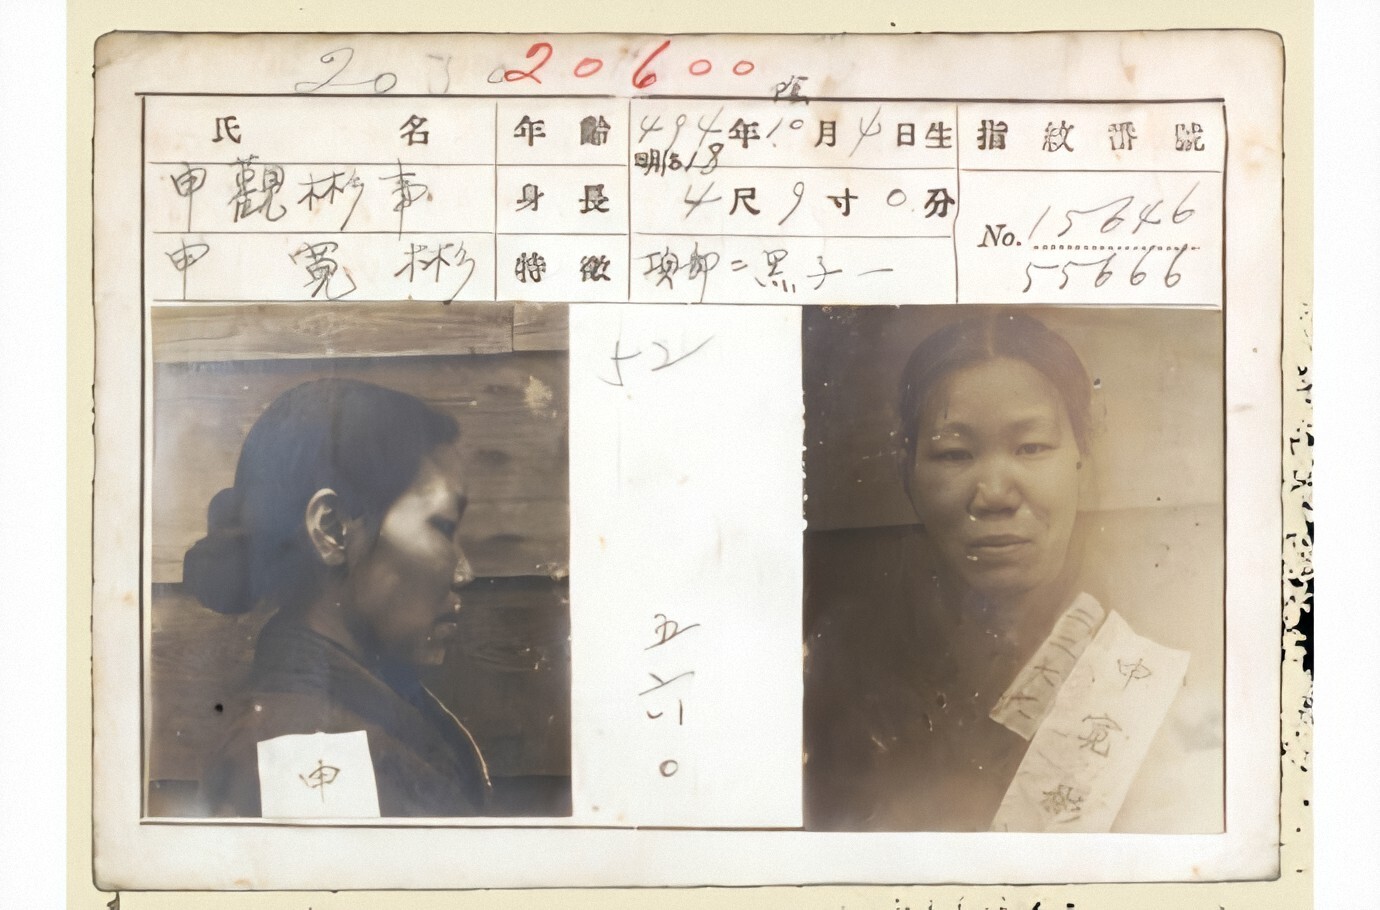 20 20600
氏 名 年 齡 494年10月4日生 指 紋 番 號
明治18
申觀彬事 身 長 4尺9寸0分 No.15646
申 寬 彬 特 徵 項部ニ黒子一 55666
52
五
六
〇
申
申
寬
彬